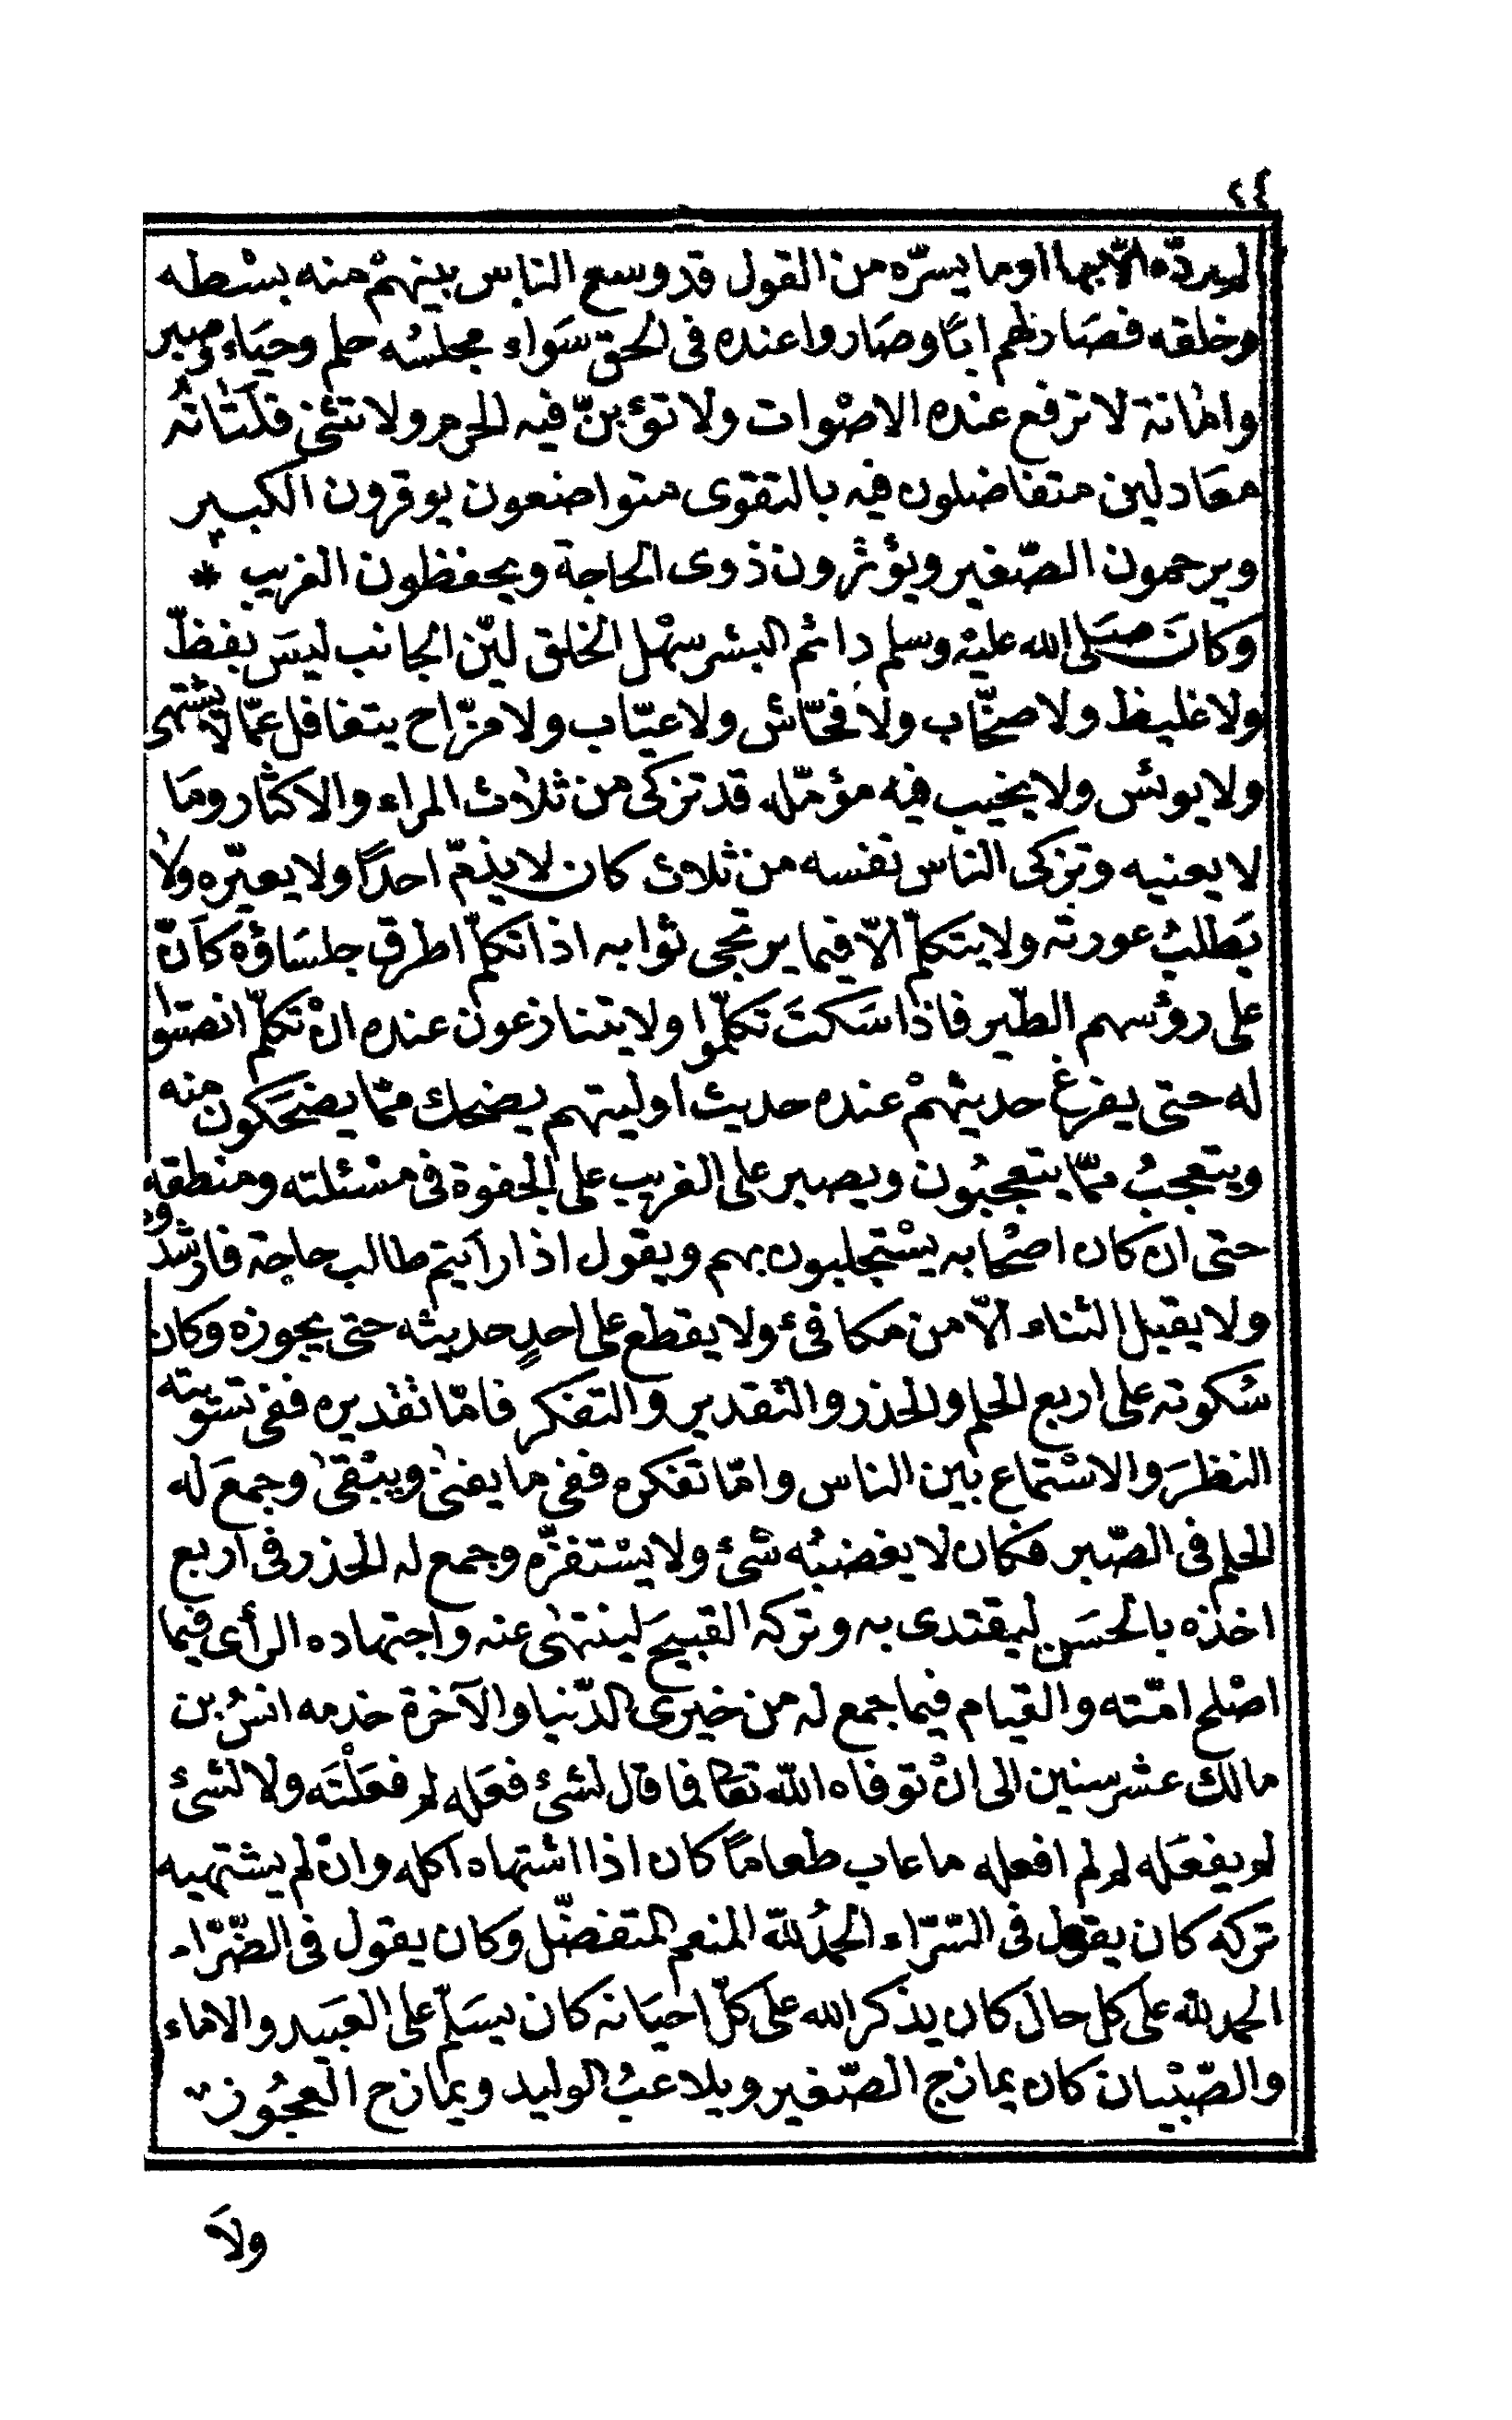 ٤٤
لم يردّه الّا بهما او ما يسرّه من القول قد وسع الناس بينهمْ منه بسْطه
وخلقه فصَار لهم ابًا وصَاروا عنده فى الحق سَواء مجلسُه حلم وحيَاء وصبر
وامٰانة لا ترفع عنده الاصْوات ولا تؤبنّ فيه الحرم ولا تنثى فلَتَاتُه
معَادلين متفاضلون فيه بالتقوى متواضعون يوقرون الكبير
ويرحمون الصّغير ويؤثرون ذوى الحاجة ويحفظون الغريب *
وكانَ صَلى الله عليْه وسلم دائم البشر سهْل الخلق ليّن الجانب ليسَ بفظّ
ولا غليظ ولا صخّاب ولا فحّاش ولا عيّاب ولا مزّاح يتغافل عمّا لا يشتهى
ولا يوئس ولا يخيب فيه مؤمّله قد تزكى من ثلاث المراء والاكثار ومَا
لا يعنيه وتزكى الناس نفسه من ثلاث كان لا يذمّ احدًا ولا يعيّره ولا
يَطلبُ عورته ولا يتكلّم الّا فيما يرتجى ثوابه اذا تكلّم اطرق جلسَاؤه كاَنّ
على رؤسهم الطّير فاذا سَكتَ تكلّموا ولا يتنازعون عنده انْ تكلّم انصتوا
له حتى يفرغ حديثهمْ عنده حديث اوليتهم يضحك ممّا يضحَكون منه
ويتعجبُ ممّا يتعجبُون ويصبر على الغريب على الجفوة فى مسْئلته ومنطقه
حتى ان كان اصْحابه يسْتجلبون بهم ويقول اذا رأيتم طالب حاجة فارشدوه
ولا يقبل الثناء الّا من مكافئ ولا يقطع على احدٍ حديثه حتى يجوزه وكان
سُكوته على اربع الحلم والحذر والتقدير والتفكر فامّا تقديره ففى تسويته
النظرَ والاسْتماع بين الناس وامّا تفكره ففى ما يفنىٰ ويبْقىٰ وجمعَ له
الحلم فى الصّبر فكان لا يغضبُه شئ ولا يسْتفزّه وجمع له الحذر فى اربع
اخذه بالحسَن ليقتدى به وتركه القبيحَ لينتهٰى عنه واجتهاده الرأى فيما
اصْلح امّته والقيام فيما جمع له من خيرى الدّنيا والآخرة خدمه انسُ بن
مالك عشر سنين الى انْ توفاه الله تعالى فما قال لشئ فعَله لم فعَلْتَه ولا لشئ
لم يفعَله لم لم افعله ما عاب طعامًا كان اذا اشتهاه اكله وانْ لم يشتهيه
تركه كان يقول فى السّرّاء الحمدُ لله المنعم المتفضّل وكان يقول فى الضّرّاء
الحمد لله على كل حال كان يذكر الله على كلّ احيَانه كان يسَلّم على العَبيد والاماء
والصّبْيان كان يمازح الصّغير ويلاعبُ الوليد ويمازح العجُوز
ولاَ